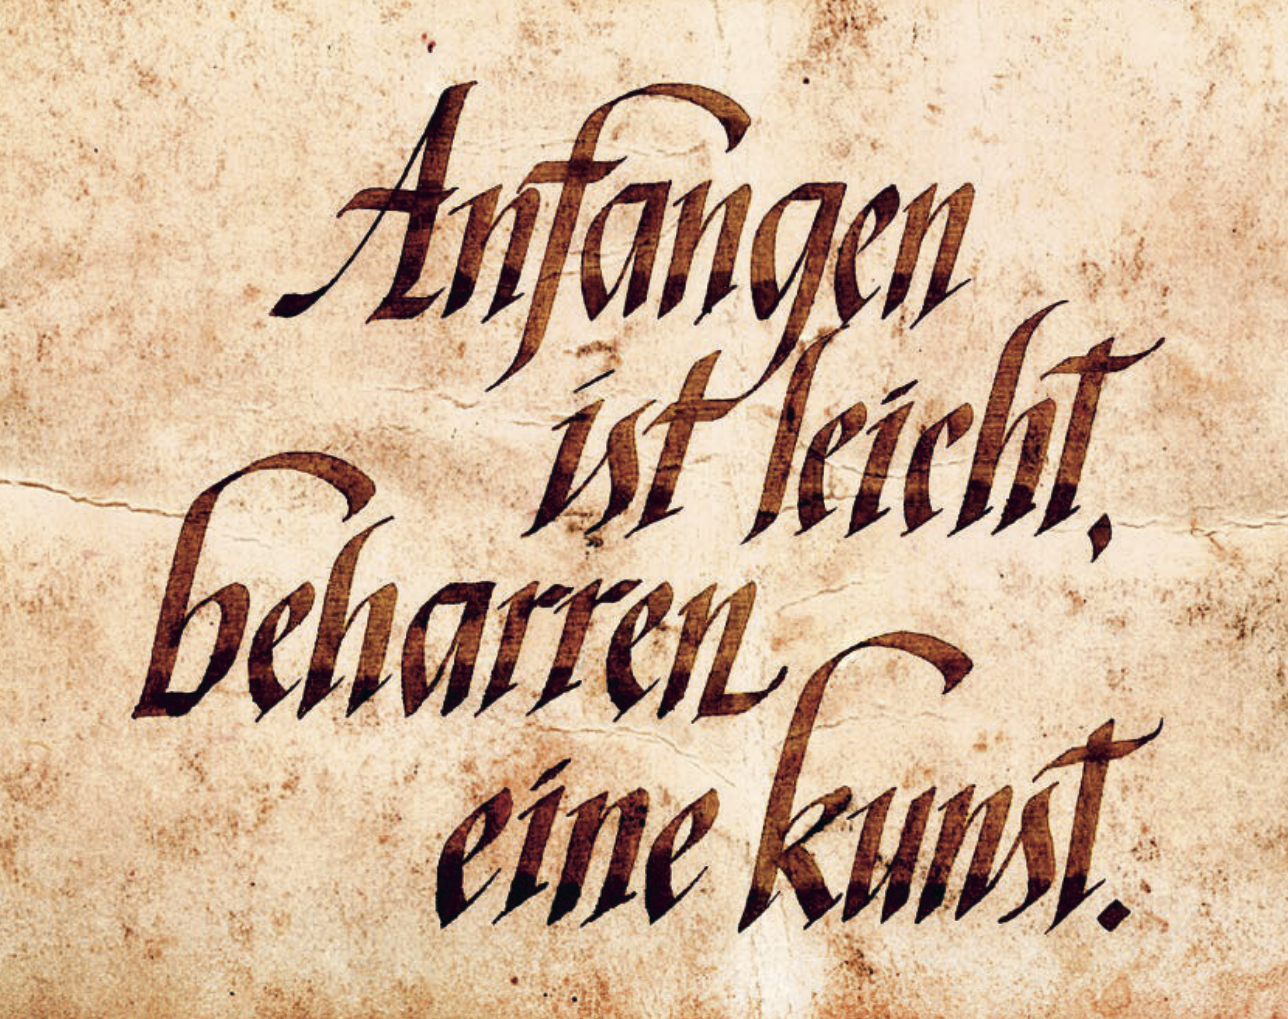 Anfangen
ist leicht,
beharren
eine kunst.